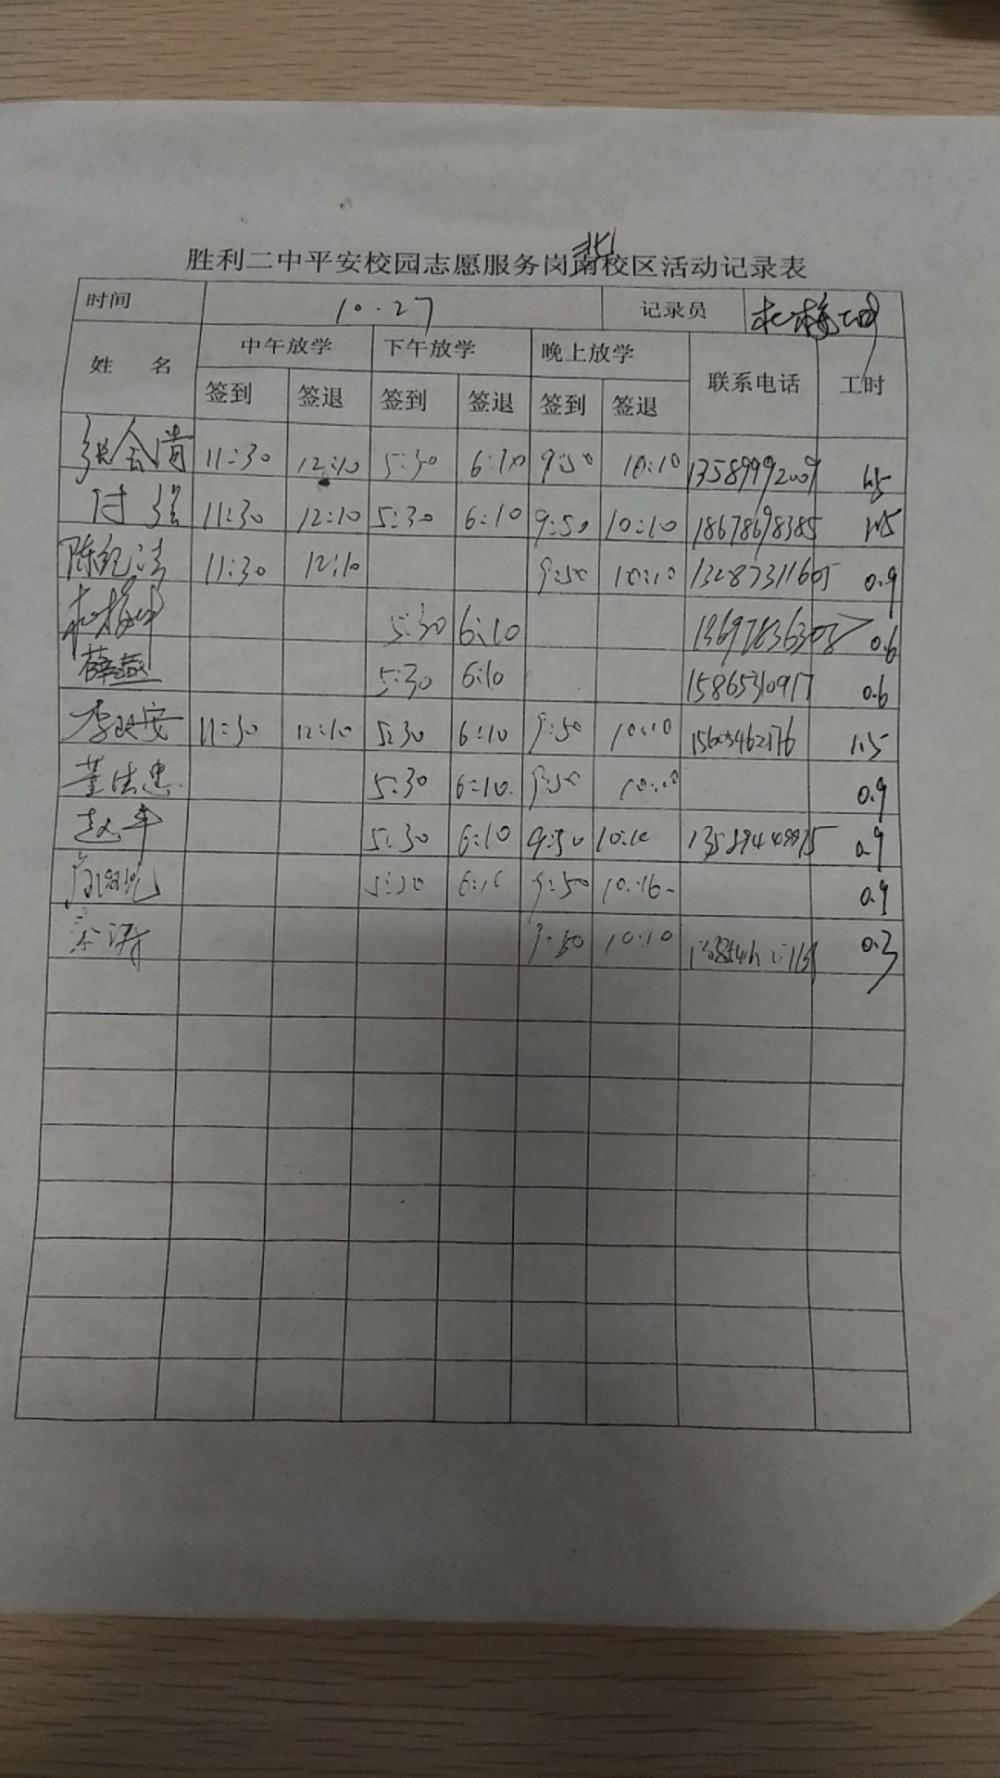 胜利二中平安校园志愿服务岗北校区活动记录表
时间 10.27 记录员
姓名 中午放学 下午放学 晚上放学 联系电话 工时
签到 签退 签到 签退 签到 签退
张会清 11:30 12:10 5:30 6:10 9:50 10:10 13589992009 1.5
付强 11:30 12:10 5:30 6:10 9:50 10:10 18678698385 1.5
陈纪清 11:30 12:10 9:50 10:10 13287311605 0.9
5:30 6:10 0.6
薛燕 5:30 6:10 15865310917 0.6
李政安 11:30 12:10 5:30 6:10 9:50 10:10 1.5
董法忠 5:30 6:10 9:50 10:10 0.9
赵平 5:30 6:10 9:50 10:10 0.9
5:30 6:10 9:50 10:10 0.9
9:50 10:10 0.3